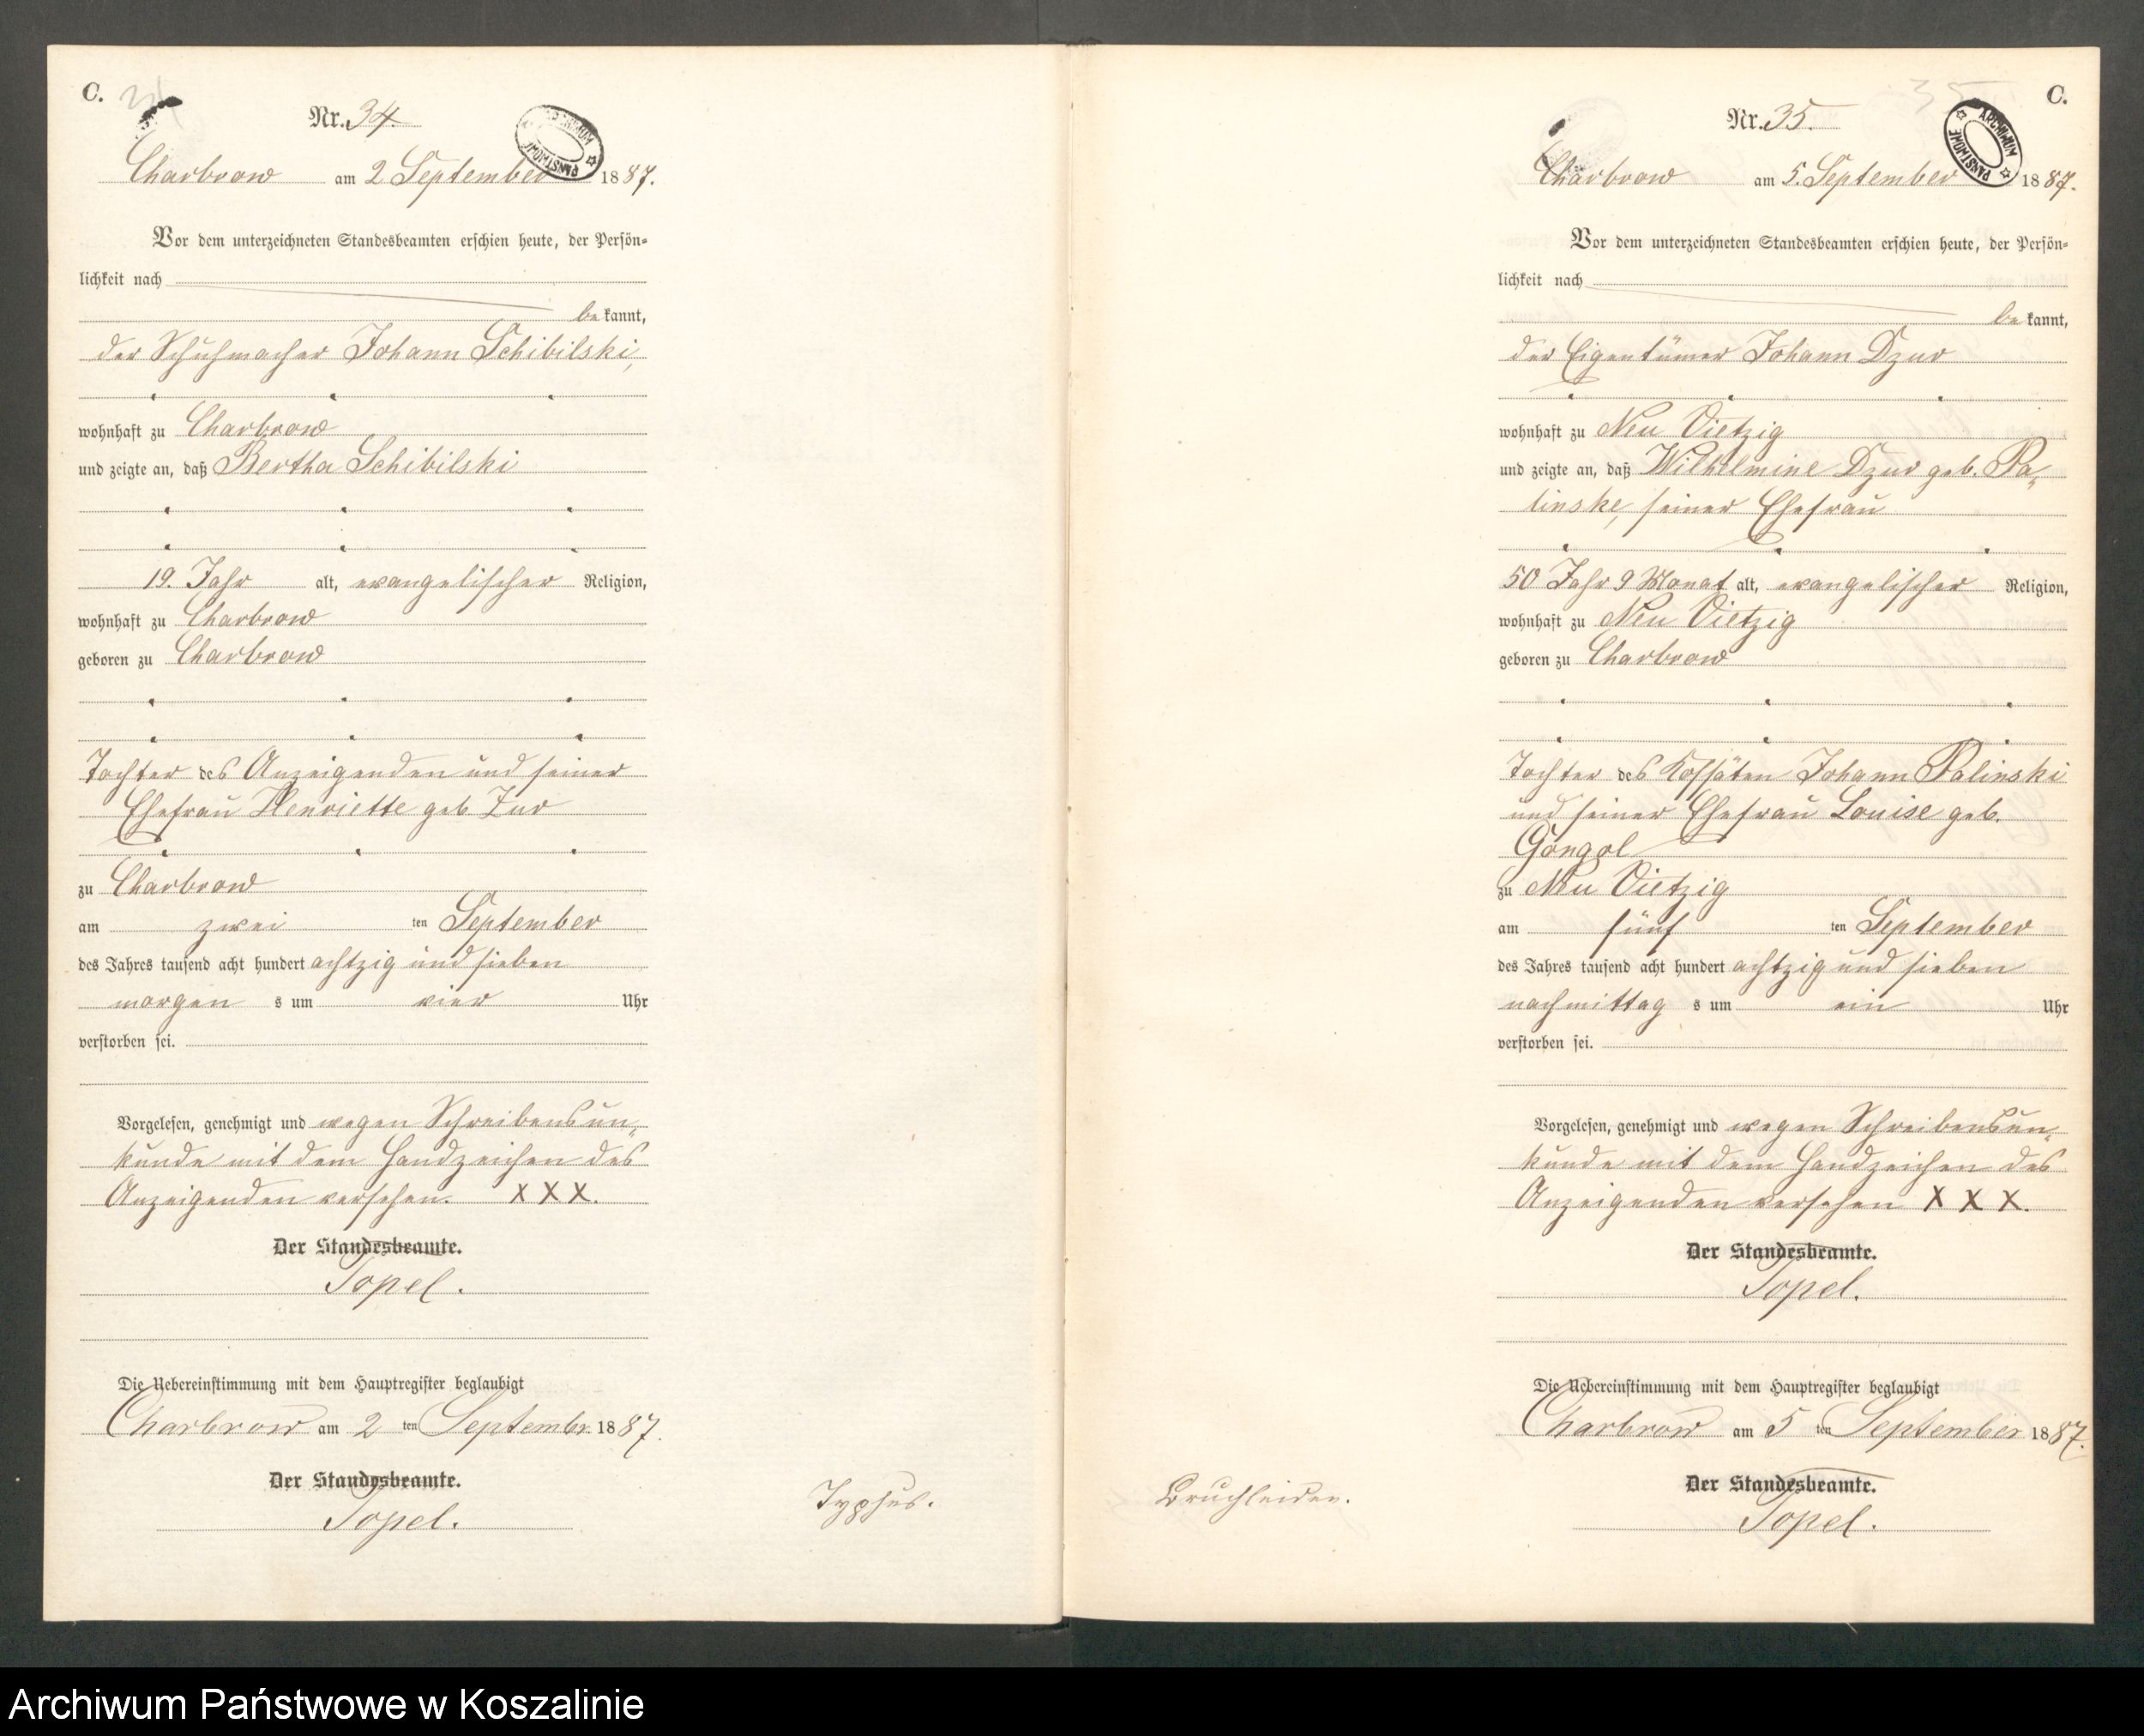 C. 34
Nr. 34.
ARCHIWUM PAŃSTWOWE
Charbrow am 2 September 1887.
Vor dem unterzeichneten Standesbeamten erschien heute, der Persön-
lichkeit nach
bekannt,
der Schuhmacher Johann Schibilski,
wohnhaft zu Charbrow
und zeigte an, daß Bertha Schibilski
19. Jahr alt, evangelischer Religion,
wohnhaft zu Charbrow
geboren zu Charbrow
Tochter des Anzeigenden und seiner
Ehefrau Henriette geb Zur
zu Charbrow
am zwei ten September
des Jahres tausend acht hundert achtzig und sieben
morgen s um vier Uhr
verstorben sei.
Vorgelesen, genehmigt und wegen Schreibensun-
kunde mit dem Handzeichen des
Anzeigenden versehen. X X X.
Der Standesbeamte.
Topel.
Die Uebereinstimmung mit dem Hauptregister beglaubigt
Charbrow am 2 ten Septembr 1887.
Der Standesbeamte.
Topel.
Typhus.
35 C.
Nr. 35.
ARCHIWUM PAŃSTWOWE
Charbrow am 5. September 1887.
Vor dem unterzeichneten Standesbeamten erschien heute, der Persön-
lichkeit nach
bekannt,
der Eigentümer Johann Dzur
wohnhaft zu Neu Vietzig
und zeigte an, daß Wilhelmine Dzur geb. Pa-
linske, seiner Ehefrau
50 Jahr 9 Monat alt, evangelischer Religion,
wohnhaft zu Neu Vietzig
geboren zu Charbrow
Tochter des Kossäten Johann Palinski
und seiner Ehefrau Louise geb.
Gongol
zu Neu Vietzig
am fünf ten September
des Jahres tausend acht hundert achtzig und sieben
nachmittag s um ein Uhr
verstorben sei.
Vorgelesen, genehmigt und wegen Schreibensun-
kunde mit dem Handzeichen des
Anzeigenden versehen X X X.
Der Standesbeamte.
Topel.
Die Uebereinstimmung mit dem Hauptregister beglaubigt
Charbrow am 5 ten September 1887.
Der Standesbeamte.
Topel.
Bruchleiden.
Archiwum Państwowe w Koszalinie